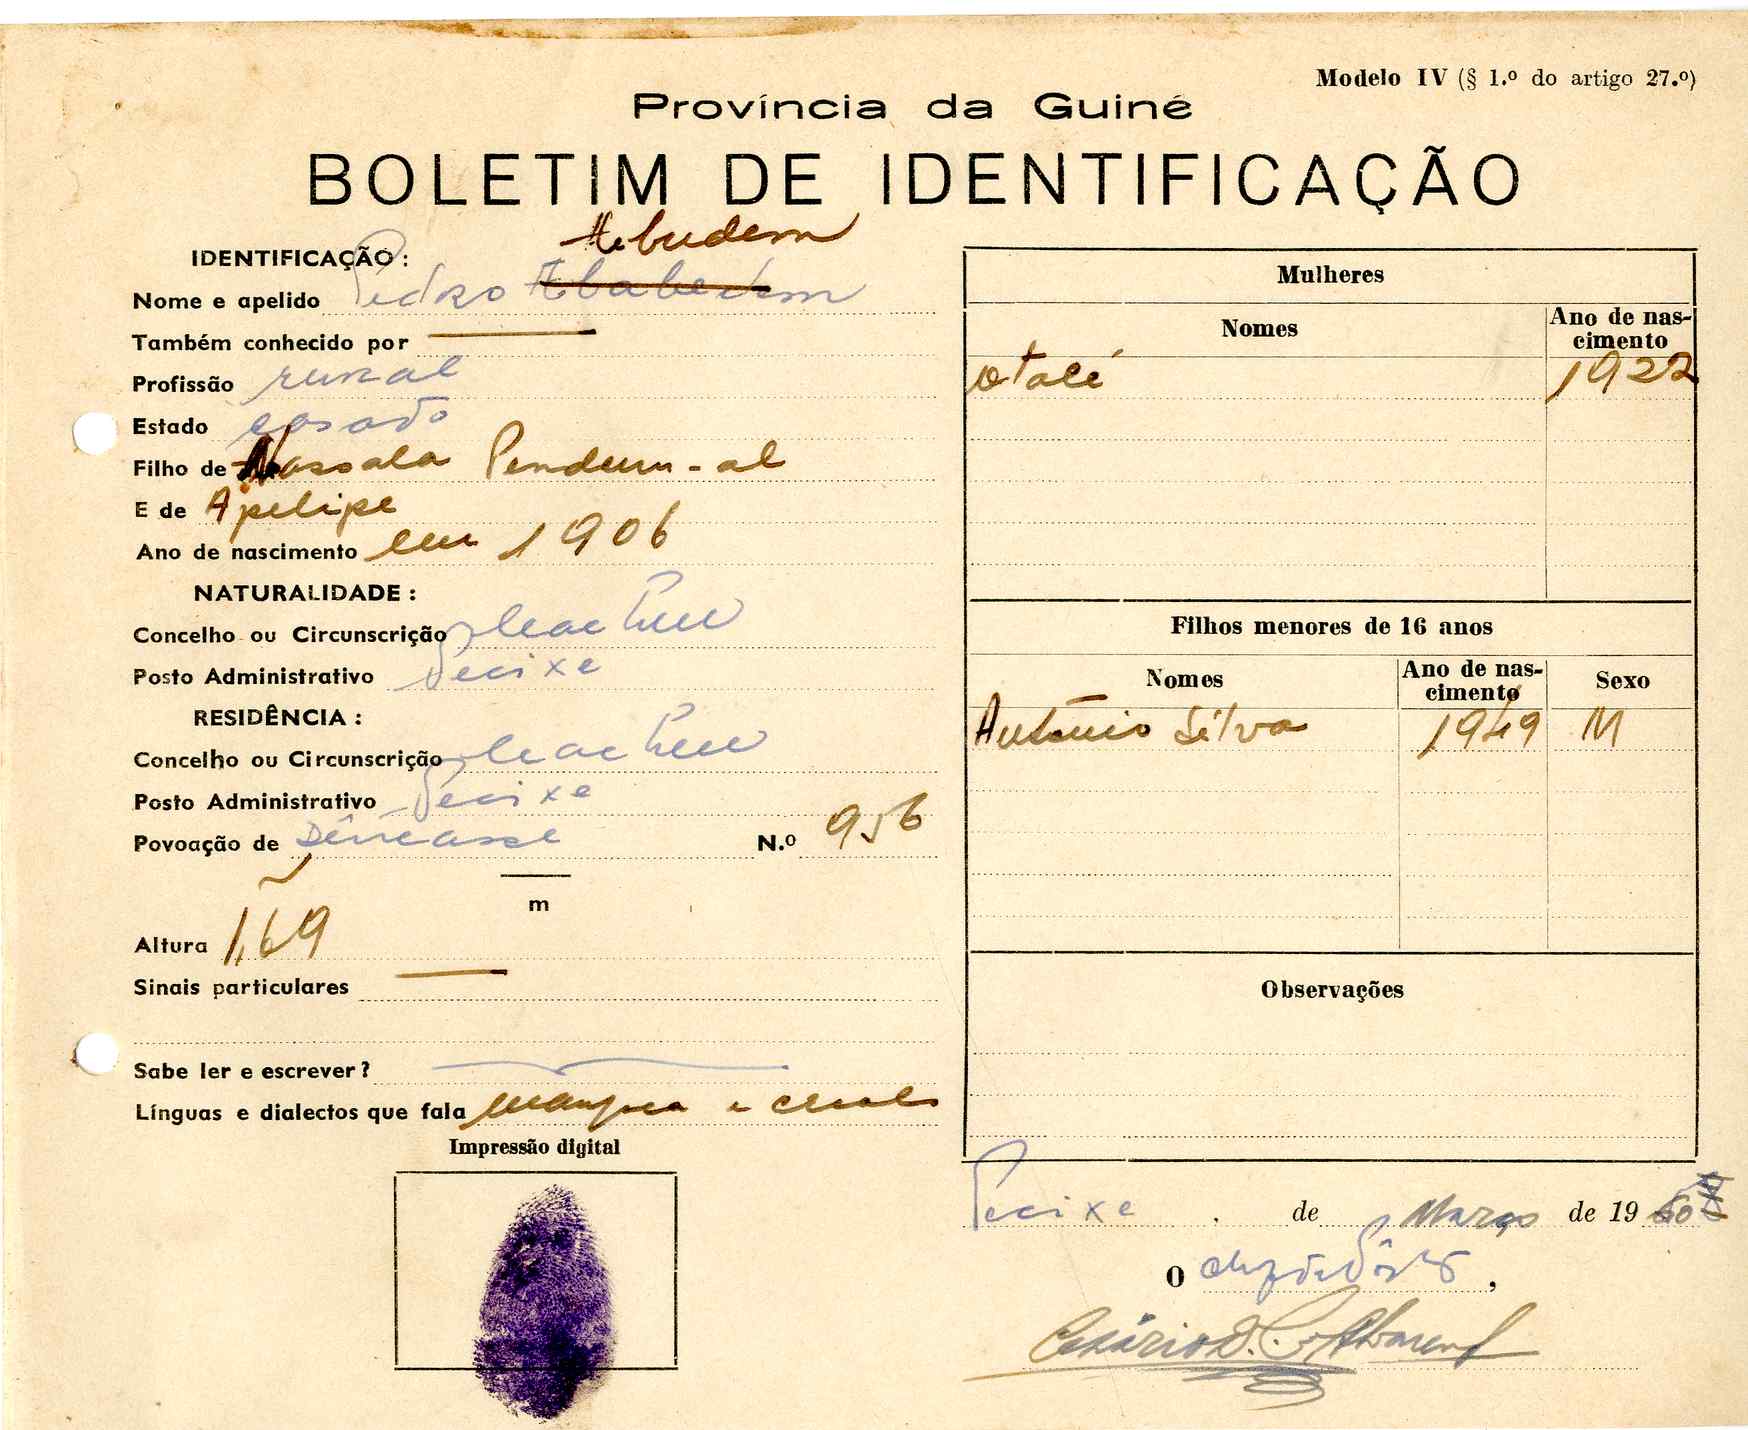 Modelo IV (§ 1.º do artigo 27.º)
Província da Guiné
BOLETIM DE IDENTIFICAÇÃO
IDENTIFICAÇÃO:
Nome e apelido Pedro
Também conhecido por
Profissão rural
Estado casado
Filho de Nassala Pendum-al
E de Apelipe
Ano de nascimento em 1906
NATURALIDADE:
Concelho ou Circunscrição
Posto Administrativo Pecixe
RESIDÊNCIA:
Concelho ou Circunscrição
Posto Administrativo Pecixe
Povoação de N.º 956
m
Altura 1,69
Sinais particulares
Sabe ler e escrever?
Línguas e dialectos que fala
Impressão digital
Mulheres
Nomes Ano de nascimento
1922
Filhos menores de 16 anos
Nomes Ano de nascimento Sexo
António Silva 1949 M
Observações
Pecixe, de Março de 1960
O chefe de Pôsto,